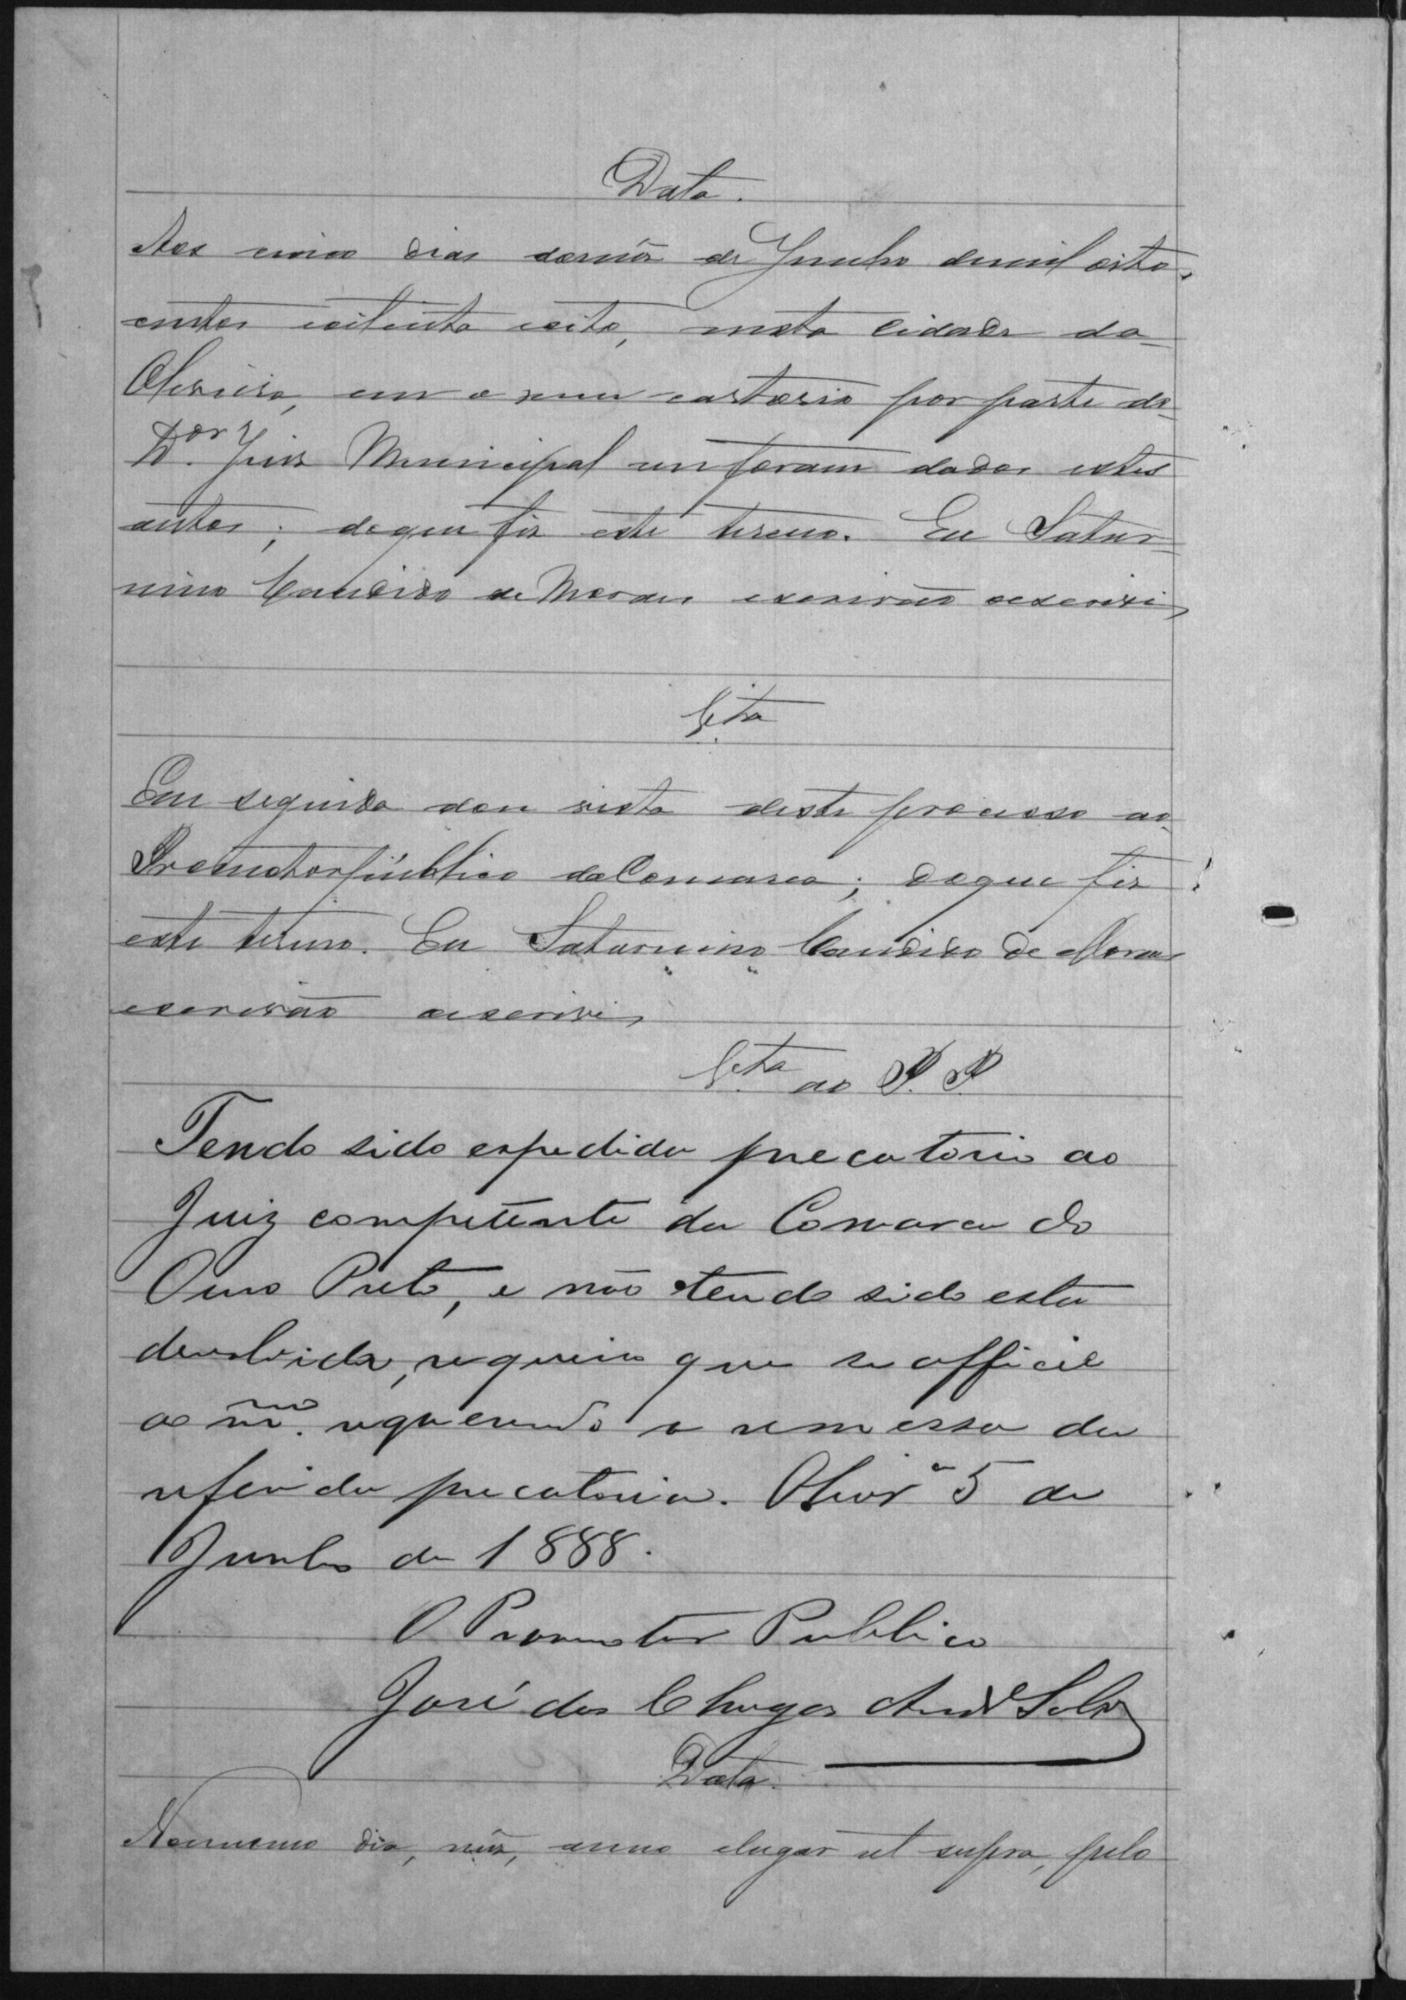 Data.
Aos cinco dias do mês de Junho de mil oito-
centos e oitenta e oito, nesta cidade da
Oliveira, em o meu cartorio por parte do
Dor. Juiz Municipal me foram dados estes
autos; de que fiz este termo. Eu Satur-
nino Candido de Moraes escrivão o escrivi,
Vta
Em seguida dou vista deste processo ao
Promotor público da Comarca; do que fiz
este termo. Eu Saturnino Candido de Moraes
escrivão o escrivi,
Vta ao P. P.
Tendo sido expedida precatoria ao
Juiz competente da Comarca do
Ouro Preto, e não tendo sido esta
devolvida, requeiro que se officie
ao mmo. requerendo a remessa da
referida precatoria. Olivra 5 de
Junho de 1888.
O Promotor Publico
José das Chagas Andre Silva
Data.
No mesmo dia, mês, anno e lugar ut supra, pelo